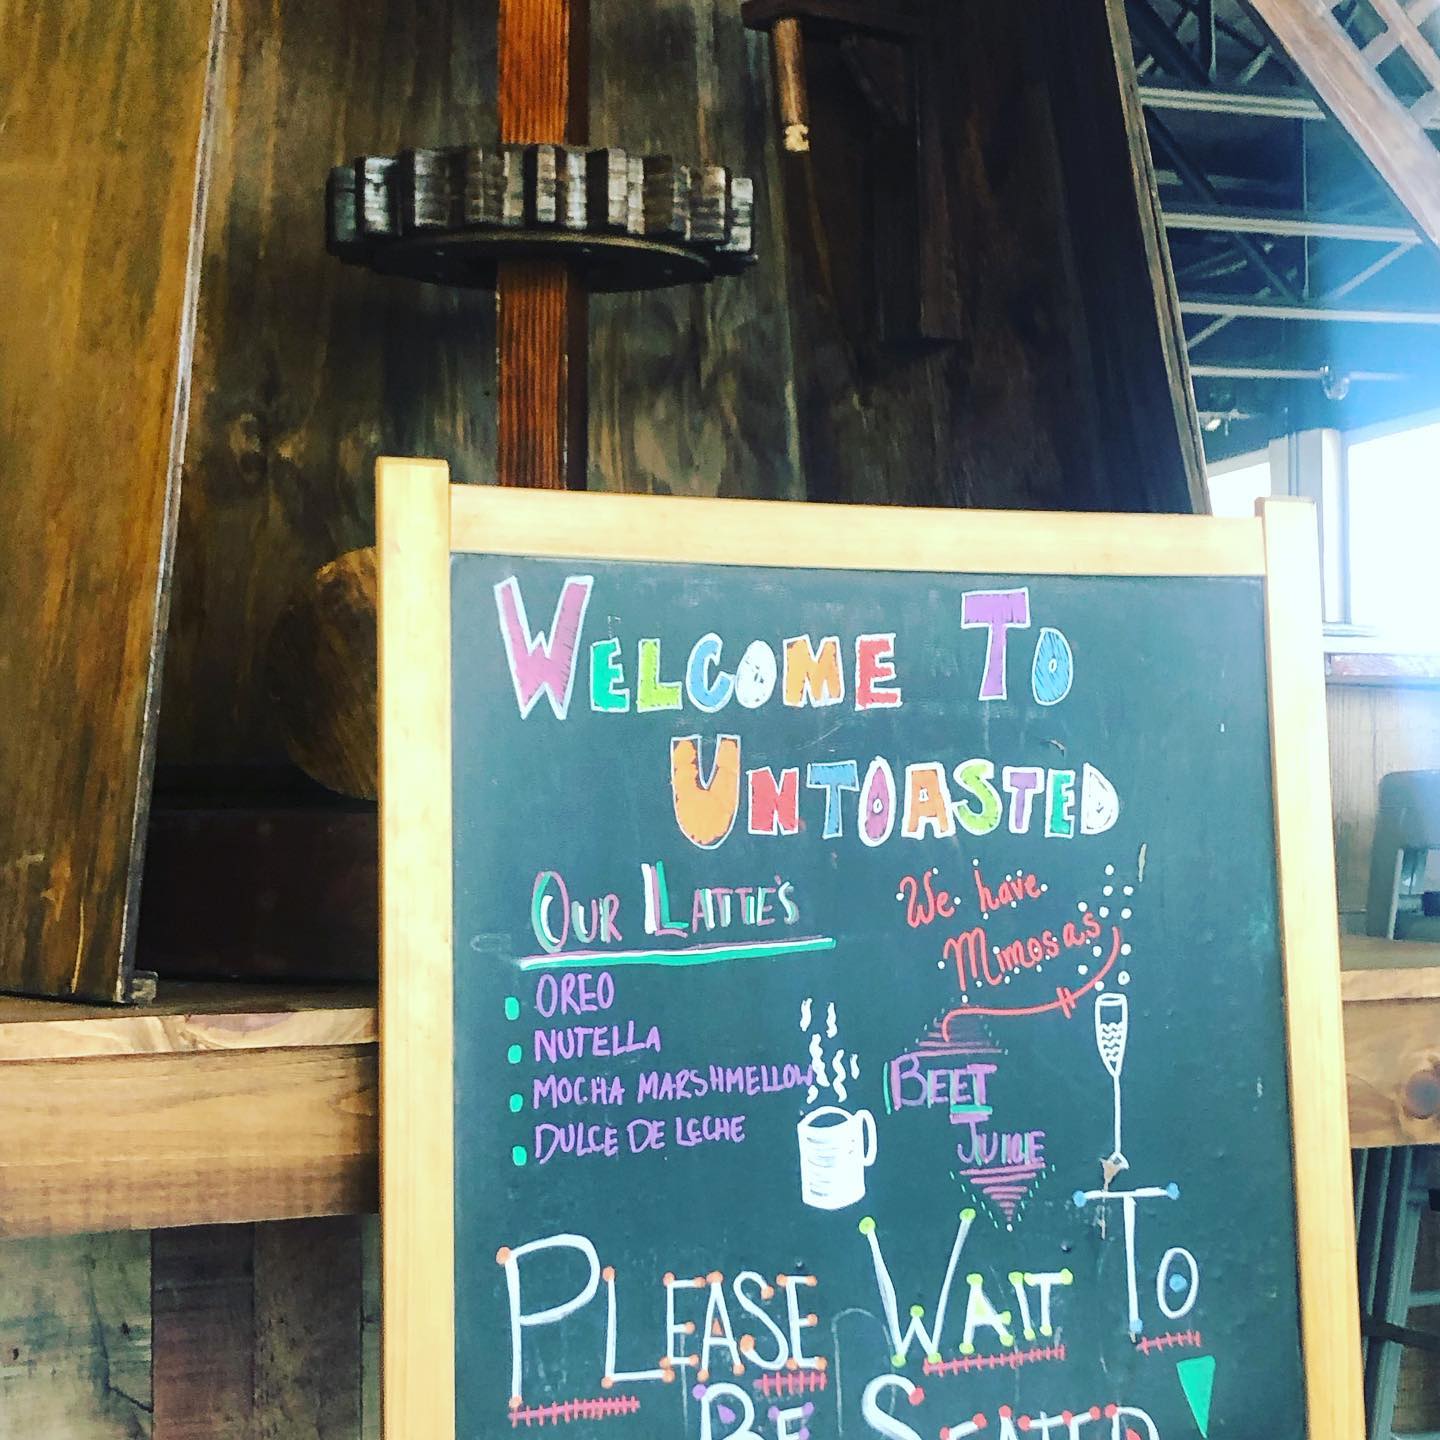 WELCOME TO
UNTOASTED
OUR LATTE'S
OREO
NUTELLA
MOCHA MARSHMELLOW
DULCE DE LECHE
We have
Mimosas
BEET
JUICE
PLEASE WAIT TO
BE SEATED